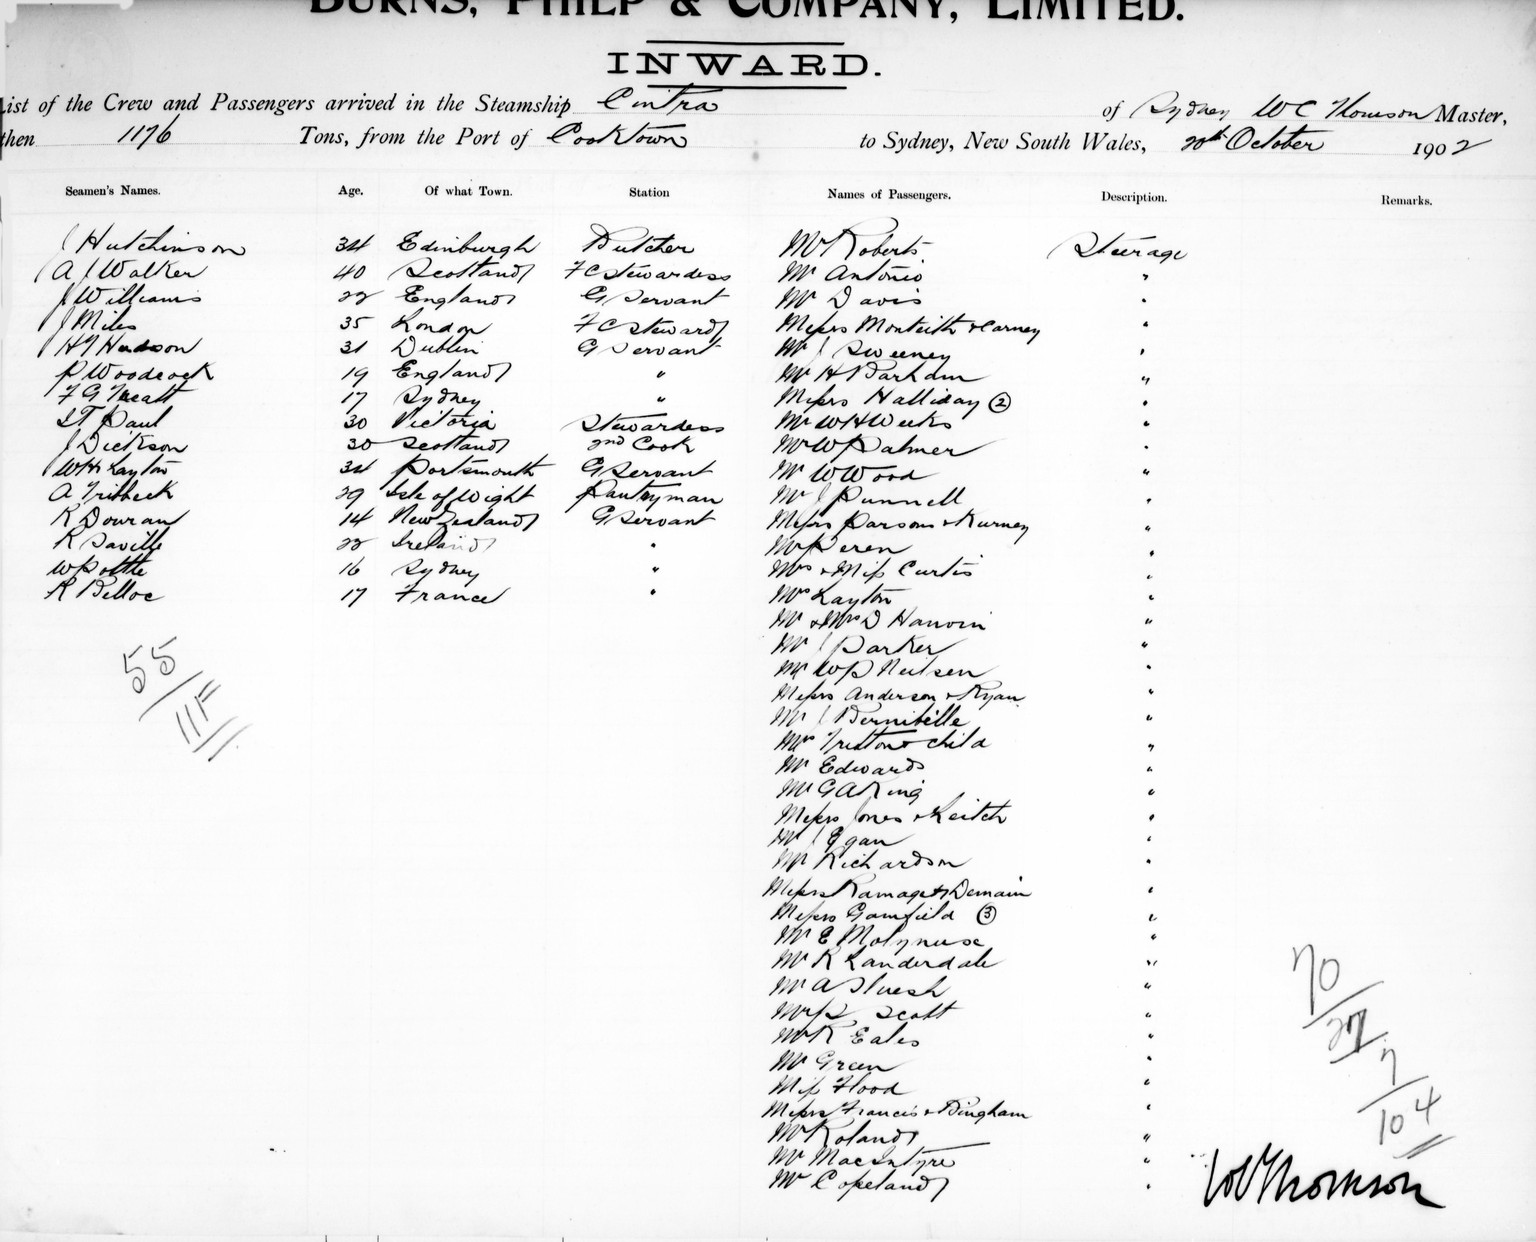 BURNS, PHILP & COMPANY, LIMITED.
INWARD.
List of the Crew and Passengers arrived in the Steamship Cintra of Sydney W C Thomson Master,
then 1176 Tons, from the Port of Cooktown to Sydney, New South Wales, 20th October 1902
Seamen's Names. Age. Of what Town. Station Names of Passengers. Description. Remarks.
J Hutchinson 34 Edinburgh Butcher Mr Roberts Steerage
A J Walker 40 Scotland F C Stewardess Mr Antonio "
J Williams 22 England G Servant Mr Davis "
J Miles 35 London F C Steward Messrs Monteith & Carney "
H J Hudson 31 Dublin G Servant Mr J Sweeney "
P Woodcock 19 England " Mr H Barham "
F G 17 Sydney " Messrs Halliday (2) "
Paul 30 Victoria Stewardess Mr W H Weeks "
J Dickson 30 Scotland 2nd Cook Mr W Palmer "
W H Layton 34 Portsmouth G Servant Mr W Wood "
A Tribbeck 29 Isle of Wight Pantryman Mr J Punnell "
R Douran 14 New Zealand G Servant Messrs Parsons & Kurney "
R Saville 22 Ireland " Mr Peren "
W Pottle 16 Sydney " Mrs & Miss Curtis "
R Belloc 17 France " Mrs Layton "
Mr & Mrs D "
Mr J Parker "
Mr W P Neilsen "
Messrs Anderson & Ryan "
Mr J "
Mrs & child "
Mr Edwards "
Mr G A King "
Messrs Jones & Keitch "
Mr J Egan "
Mr Richardson "
Messrs Ramage & Demain "
Messrs Gamfield (3) "
Mr E Molynuse "
Mr R Landerdale "
Mr A "
Mr P Scott "
Mr R Eales "
Mr Green "
Miss Flood "
Messrs Francis & Bingham "
Mr Roland "
Mr MacIntyre "
Mr Copeland "
55
11F
70
27
7
104
W C Thomson